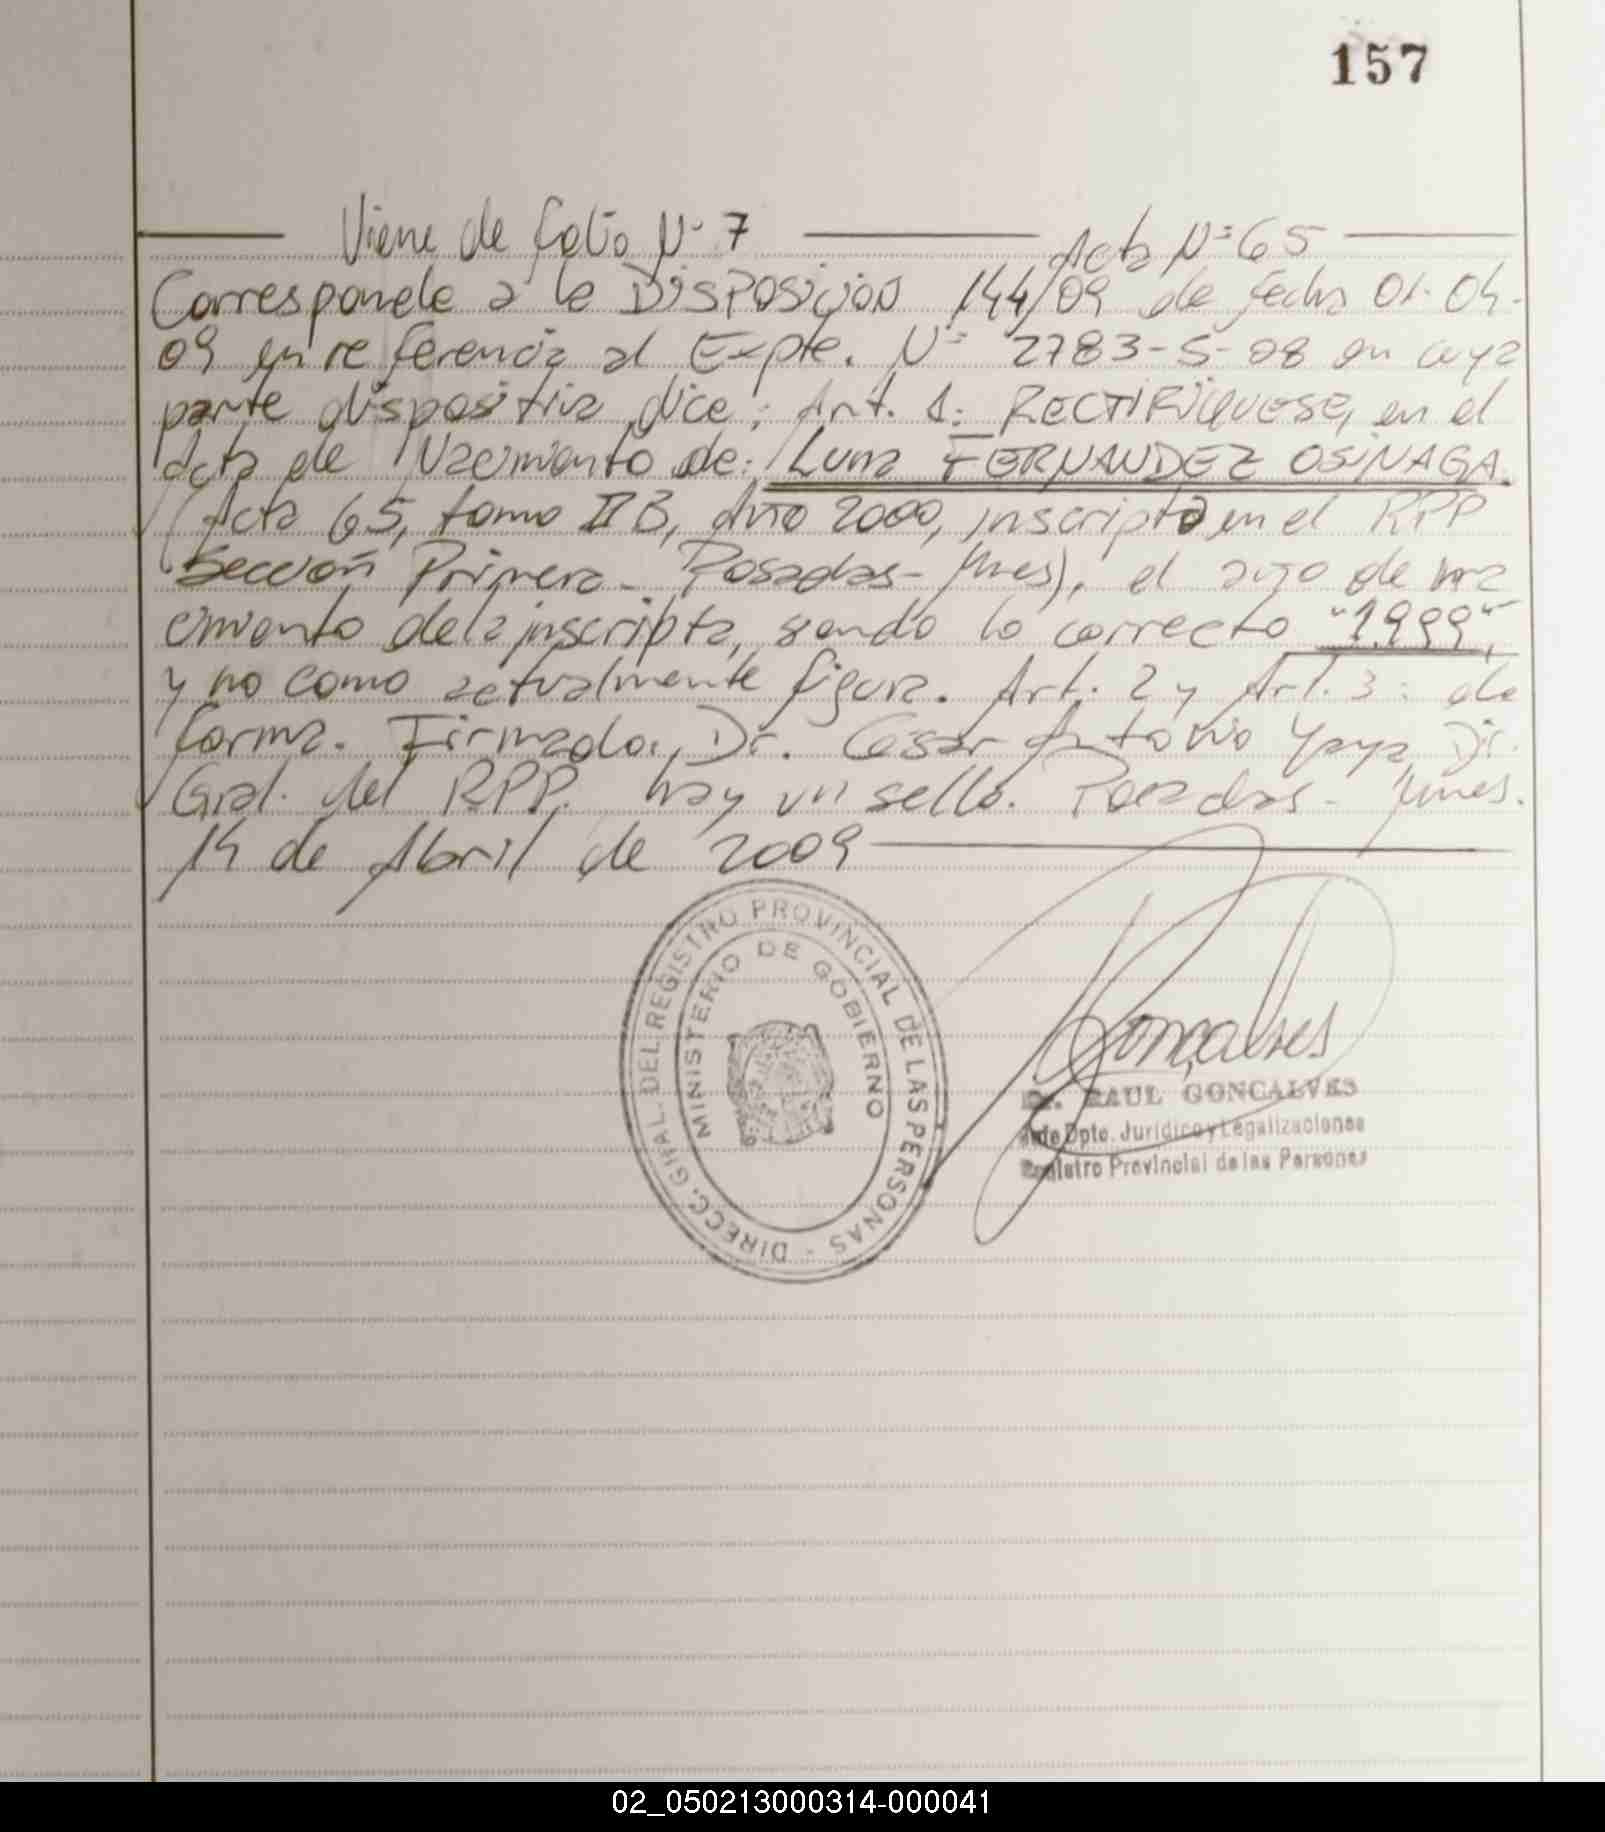 157
Viene de folio Nº 7 Acta Nº 65
Corresponde a la DISPOSICION 144/09 de fecha 01-04-
09 en referencia al Expte. Nº 2783-S-08 en cuya
parte dispositiva dice: Art. 1: RECTIFIQUESE, en el
Acta de Nacimiento de: Luna FERNANDEZ OSINAGA.
(Acta 65, tomo II B, Año 2000, inscripta en el RPP
Sección Primera - Posadas - Mnes), el año de na
cimiento de la inscripta, siendo lo correcto "1.999",
y no como actualmente figura. Art. 2 y Art. 3: de
forma. Firmado: Dr. Cesar Antonio Yaya, Dir.
Gral. del RPP. hay un sello. Posadas - Mnes.
14 de Abril de 2009
DIRECC. GRAL. DEL REGISTRO PROVINCIAL DE LAS PERSONAS -
MINISTERIO DE GOBIERNO
Gonçalves
Dr. RAUL GONCALVES
Jefe Dpto. Jurídico y Legalizaciones
Registro Provincial de las Personas
02_050213000314-000041